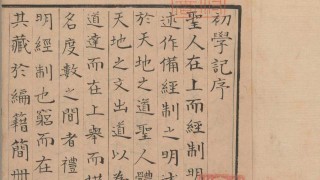 初學記序
聖人在上而經制明
述作備經制之明
於天地之道聖人體
天地之文出道以為
道達而在上舉而措
名度數之間者禮
明經制也窮而在
其藏於編籍簡冊